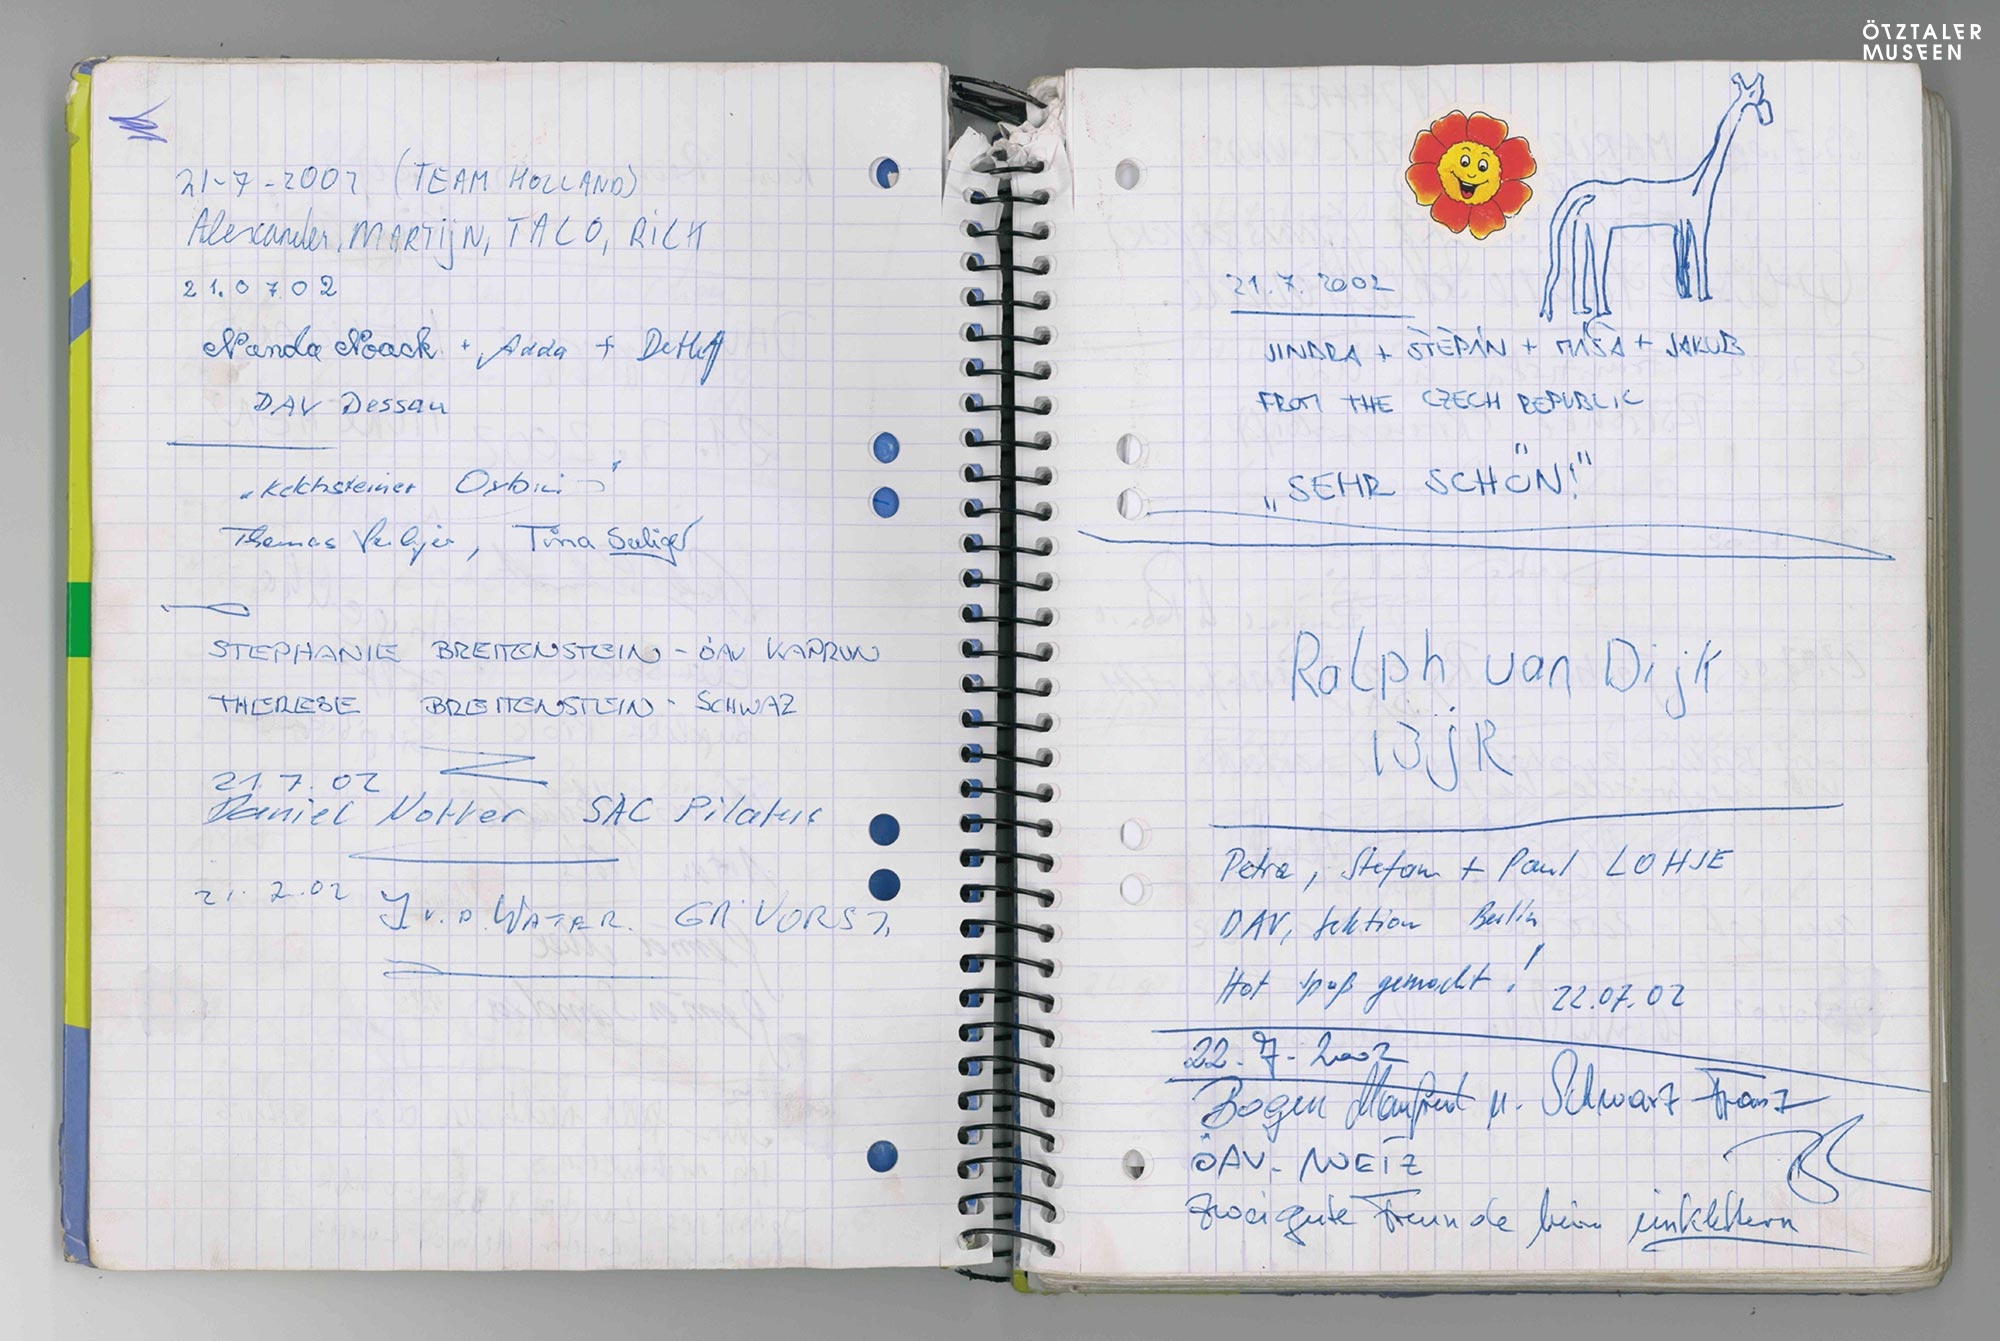 21-7-2002 (TEAM HOLLAND)
Alexander, MARTIJN, TACO, RICK
21.0702
Nanda Noack + Adda + Detleff
DAV Dessau
Thomas, Tina Seliger
STEPHANIE BREITENSTEIN - ÖAV KAPRUN
THERESE BREITENSTEIN - SCHWAZ
21.7.02
Daniel Notter SAC Pilatus
21.7.02 J v.d. WATER.
ÖTZTALER
MUSEEN
21.7.2002
JINDRA + ŠTĚPÁN + MÍŠA + JAKUB
FROM THE CZECH REPUBLIC
„SEHR SCHÖN!"
Ralph van Dijk
Petra, Stefan + Paul LOHSE
DAV, Sektion Berlin
Hat Spaß gemacht! 22.07.02
22-7-2002
Manfred u. Schwarz Franz
ÖAV-
Zwei gute Freunde beim